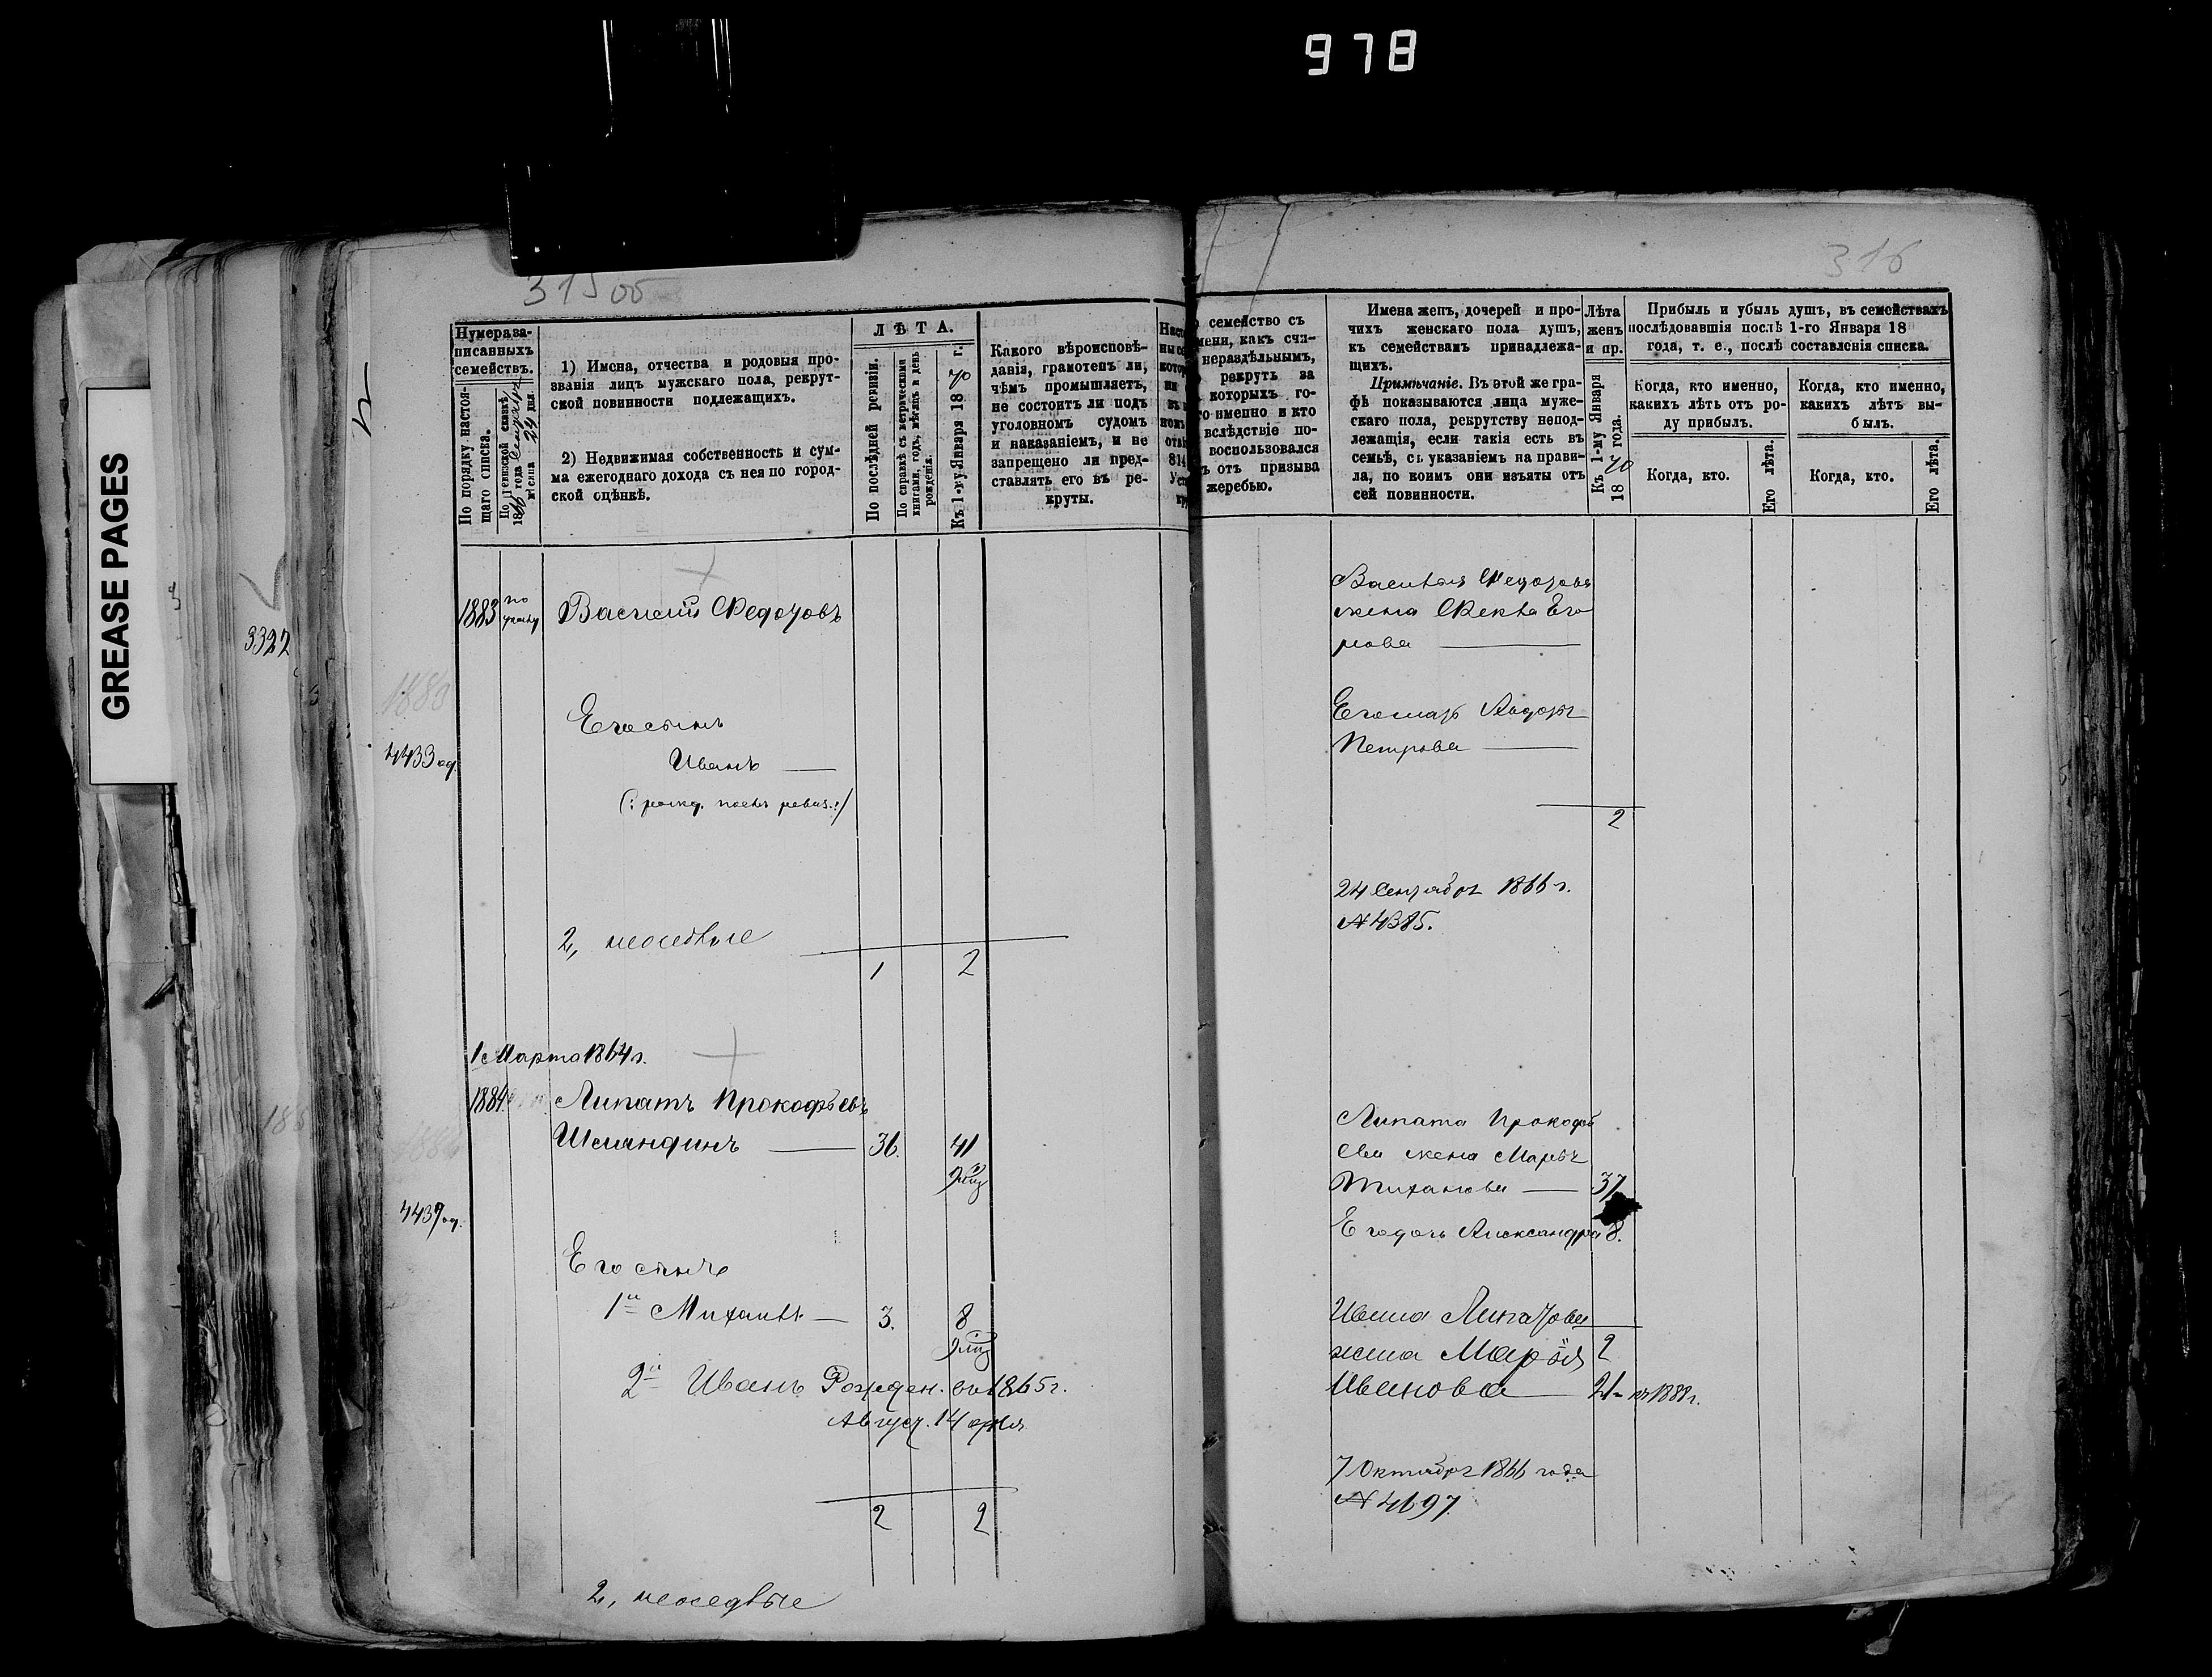 978
GREASE PAGES
3322
315 об
Нумера за-
писанныхъ
семействъ.
По порядку настоя-
щаго списка.
По ревизской сказкѣ
18 года
мѣсяца 24 дня.
1) Имена, отчества и родовыя про-
званія лицъ мужскаго пола, рекрут-
ской повинности подлежащихъ.
2) Недвижимая собственность и сум-
ма ежегоднаго дохода съ нея по город-
ской оцѣнкѣ.
ЛѢТА.
По послѣдней ревизіи.
По справкѣ съ метрическими
книгами, годъ, мѣсяцъ и день
рожденія.
Къ 1-му Января 1870 г.
Какого вѣроисповѣ-
данія, грамотенъ ли,
чѣмъ промышляетъ,
не состоитъ ли подъ
уголовномъ судомъ
и наказаніемъ, и не
запрещено ли пред-
ставлять его въ ре-
круты.
1883 по Василий Федоровъ
1883
4433 од.
Его сынъ
Иванъ —
(: рожд. послѣ ревиз.:)
2, неоседлые
1 2
1 Марта 1864 г.
1884 Липатъ Прокофьевъ
Шемандинъ — 36. 41
4437 од.
Его сынъ
1й Михаилъ — 3. 8
2й Иванъ Рожден. въ 1865 г.
Август. 14 дня
2 2
2, неоседлые
316
семейство съ
мени, какъ счи-
нераздѣльнымъ,
рекрутъ за
которыхъ го-
го именно и кто
вслѣдствіе по-
воспользовался
ъ отъ призыва
жеребью.
Имена женъ, дочерей и про-
чихъ женскаго пола душъ,
къ семействамъ принадлежа-
щихъ.
Примѣчаніе. Въ этой же гра-
фѣ показываются лица муже-
скаго пола, рекрутству непод-
лежащія, если такія есть въ
семьѣ, съ указаніемъ на прави-
ла, по коимъ они изъяты отъ
сей повинности.
Лѣта
женъ
и пр.
Къ 1-му Января
1870 года.
Прибыль и убыль душъ, въ семействахъ
послѣдовавшія послѣ 1-го Января 18
года, т. е., послѣ составленія списка.
Когда, кто именно,
какихъ лѣтъ отъ ро-
ду прибылъ.
Когда, кто именно,
какихъ лѣтъ вы-
былъ.
Когда, кто.
Его лѣта.
Когда, кто.
Его лѣта.
Василья Федорова
жена Фекла Его
рова —
Его мать Авдотья
Петрова —
2
24 Сентября 1866 г.
№ 4385.
Липата Прокофь
ева жена Марья
Тиханова — 37
Его дочь Александра 8.
Ивана Липатова
2
жена Марія
Иванова — 21 - въ 1888 г.
7 Октября 1866 года
№ 4697.